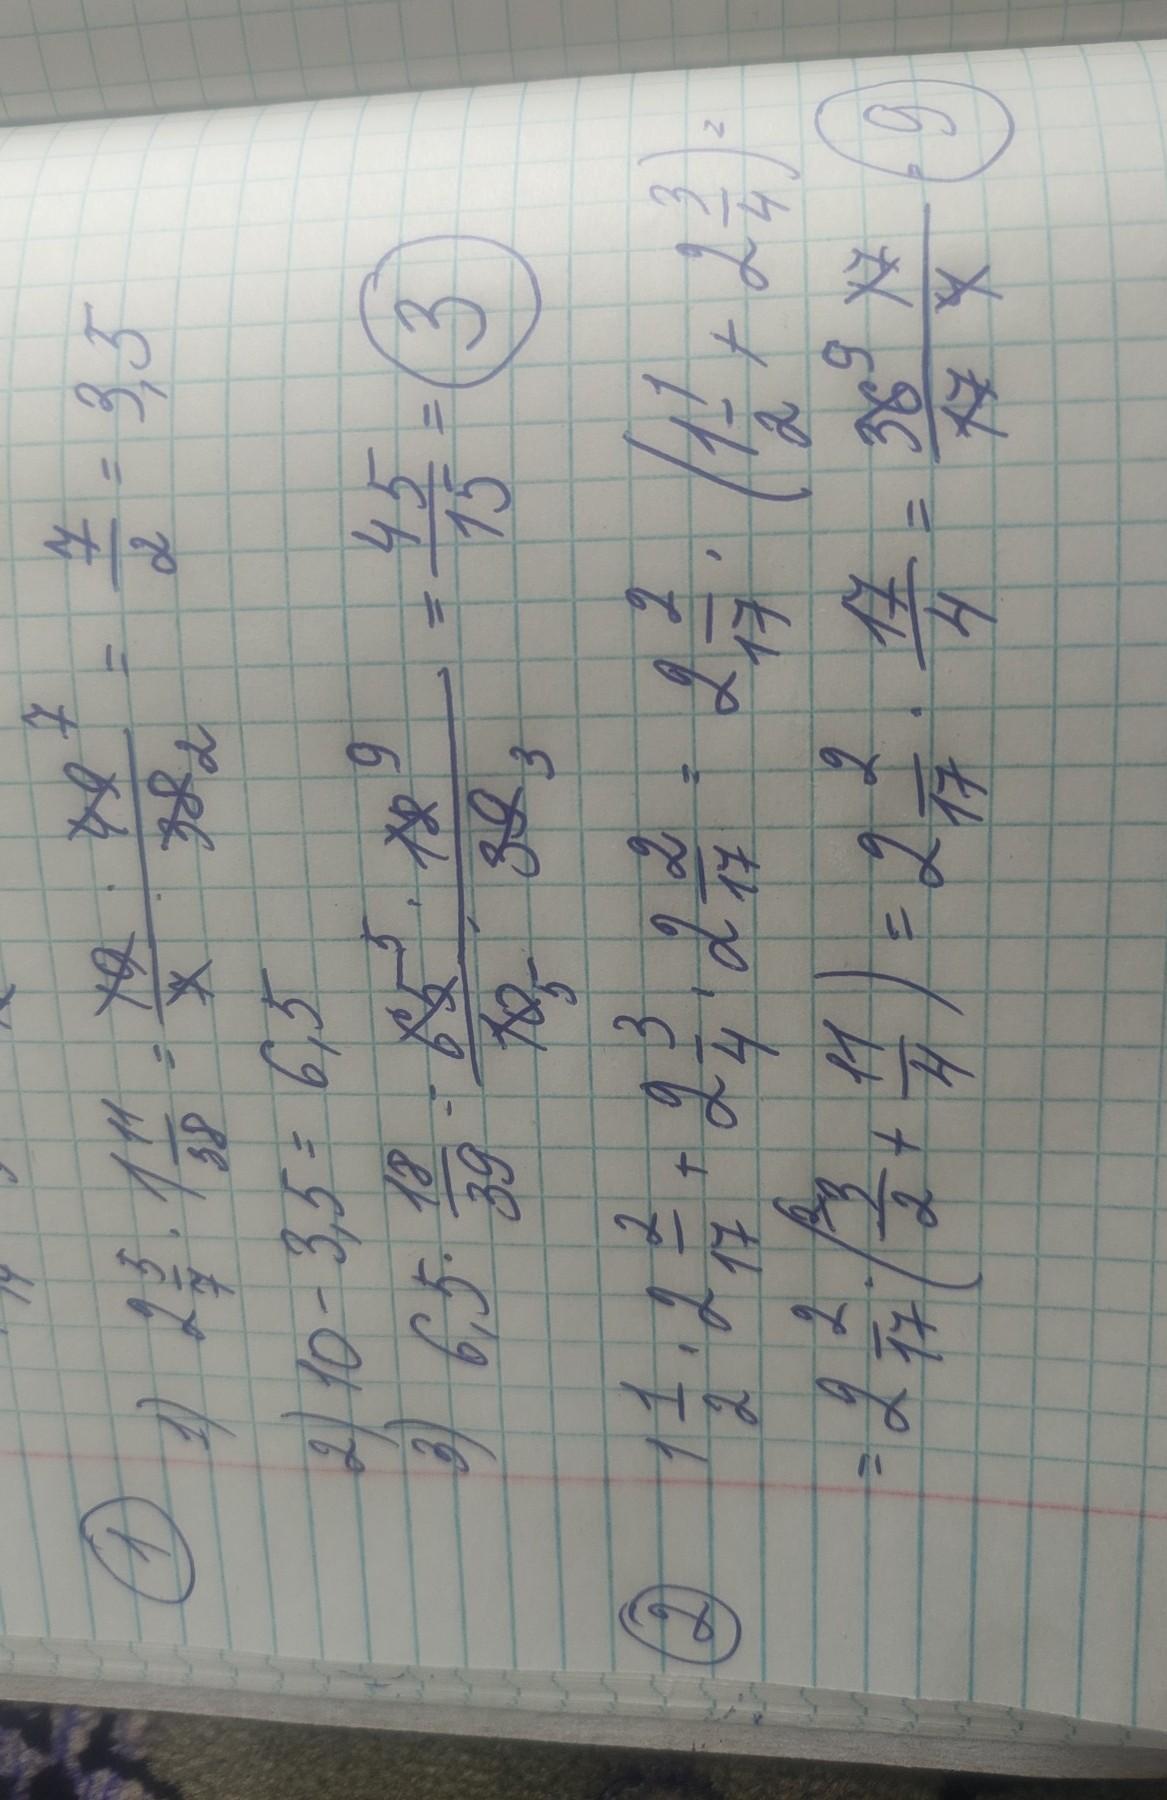 1
1) 2 5/7 · 1 11/38 = 19 · 49 7 / 7 · 38 2 = 7/2 = 3,5
2) 10 - 3,5 = 6,5
3) 6,5 · 18/39 = 65 5 · 18 9 / 10 5 · 39 3 = 45/15 = 3
2
1 1/2 · 2 2/17 + 2 3/4 · 2 2/17 = 2 2/17 · (1 1/2 + 2 3/4) =
= 2 2/17 · (2 3/2 + 11/4) = 2 2/17 · 17/4 = 36 9 17 / 17 4 = 9